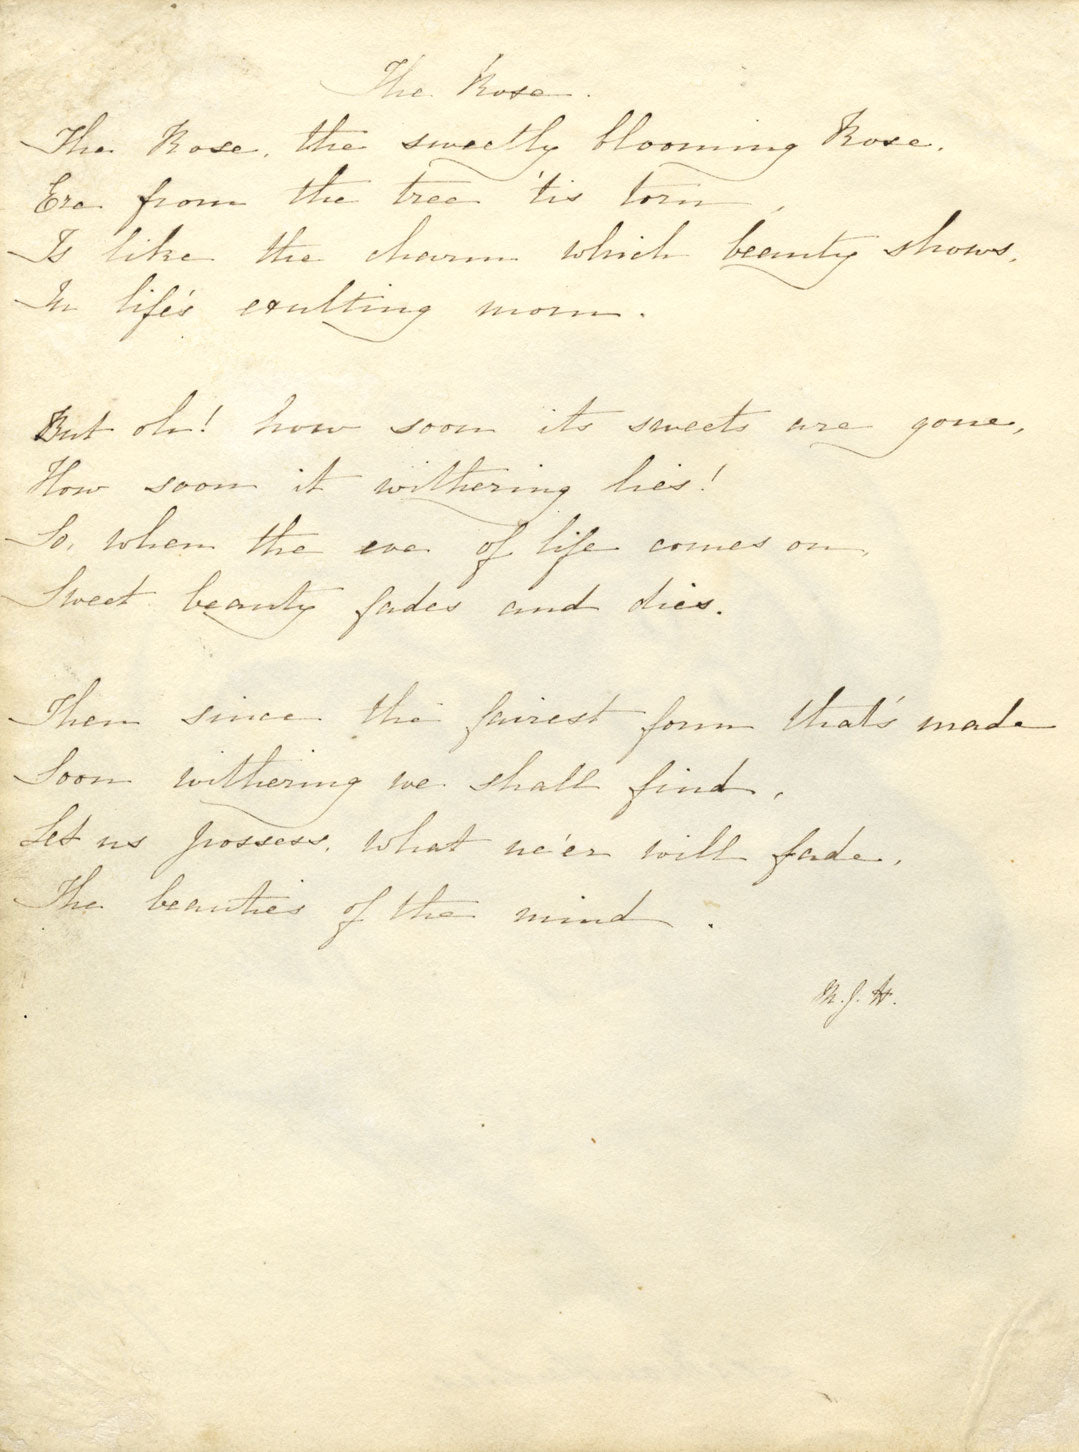 The Rose.
The Rose, the sweetly blooming Rose,
Ere from the tree 'tis torn,
Is like the charm which beauty shows,
In life's exulting morn.
But oh! how soon its sweets are gone,
How soon it withering lies!
So, when the eve of life comes on,
Sweet beauty fades and dies.
Then since the fairest form that's made
Soon withering we shall find,
Let us possess, what ne'er will fade,
The beauties of the mind.
J. H.